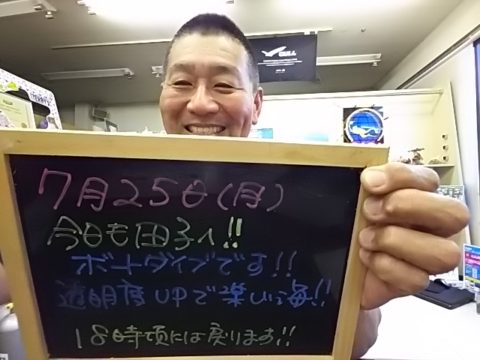 7月25日(月)
今日も田子へ!!
ボートダイブです!!
透明度UPで楽しい海!!
18時頃には戻ります!!
GULL